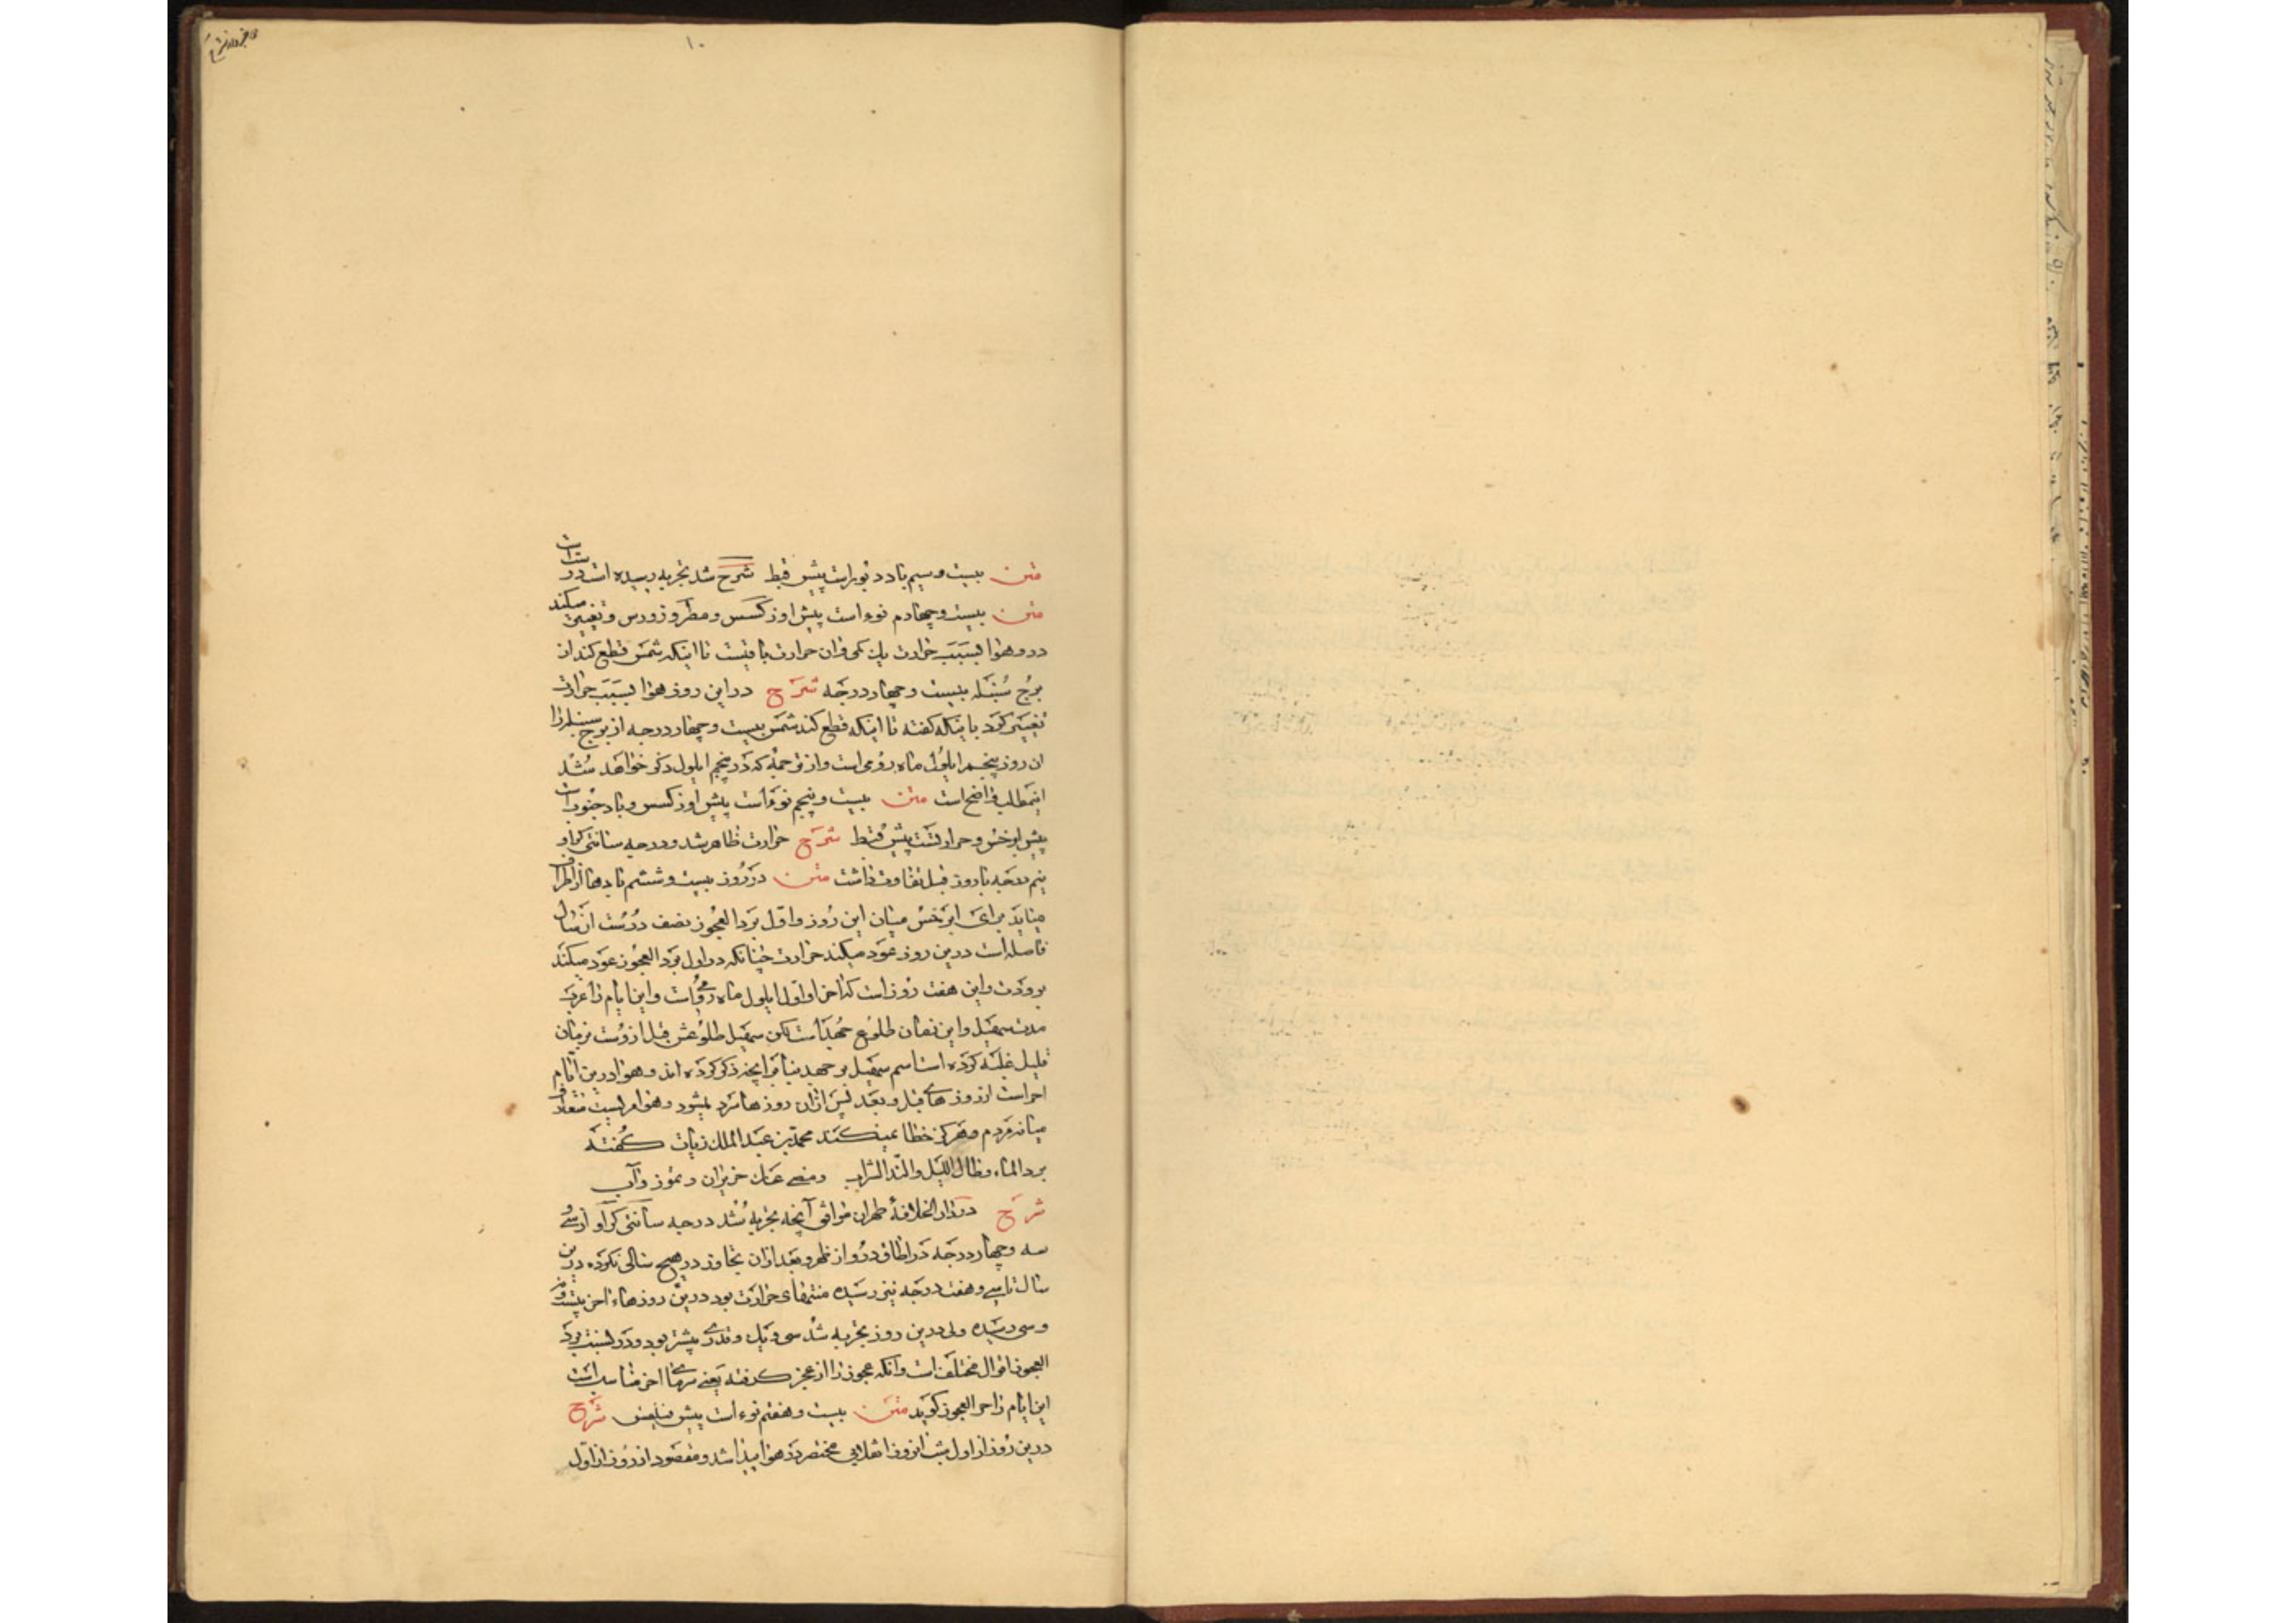 ۱۰
متن بیست و سیم باد دبور است پیش قبط شرح شد تجربه رسیده است در
متن بیست و چهارم نوء است پیش اوذکسس و مطرودورس و تغییر میکند
در وی هوا بسبب حرارت تا اینکه شمس قطع کند از
برج سنبله بیست و چهار درجه شرح در این روز هوا بسبب حرارت
تغییر کرد با اینکه گفته تا اینکه قطع کند شمس بیست و چهار درجه از برج سنبله را
ان روز پنجم ایلول ماه رومی است و از ترجمه که در پنجم ایلول ذکر خواهد شد
اینمطلب واضح است متن بیست و پنجم نوء است پیش اوذکسس و باد جنوب است
پیش ابرخس و حرارتست پیش قبط شرح حرارت ظاهر شد و درجه سانتی کراو
نیم درجه با روز قبل تفاوت داشت متن در روز بیست و ششم بادها از اطراف
میاید برای ابرخس میان این روز و اول برد العجوز نصف درست از سال
فاصله است درین روز عود میکند حرارت چنانکه در اول برد العجوز عود میکند
برودت و این هفت روز است که اخر او اول ایلول ماه رومی است و این ایام را عرب
سهیل و این زمان طلوع جبهه است لکن سهیل طلوعش قبل از وست بزمان
قلیل غلبه کرده است اسم سهیل بر جبهه بنابر انچه ذکر کرده اند و هوا درین ایام
احر است از روزهای قبل و بعد پس ازان روزها سرد میشود و هوا امریست متعارف
میانه مردم و هرکز خطا نمیکند محمد بن عبد الملک زیات گفته
برد الماء و طال اللیل والتذ الشراب ومضی عنک حزیران و تموز و آب
شرح در دار الخلافه طهران موافق آنچه تجربه شد درجه سانتی کراو از سی و
سه و چهار درجه در اطاق در و از ظهر و بعد ازان تجاوز در هیچ سالی نکرده درین
سال تا سی و هفت درجه نیز رسیده منتهای حرارت بود درین روزهاء اخر بیست و
و سی رسیده ولی درین روز تجربه شد سی و یک و قدری بیشتر بود و در نسبت برد
العجوز اقوال مختلف است و انکه عجوز را از عجز گرفته یعنی سرمای اخر مناسب است
این ایام را حر العجوز کوید متن بیست و هفتم نوء است پیش فیلپس شرح
درین روز از اول شب انروز انقلابی مختصر در هوا پیدا شد و مقصود از روز از اول